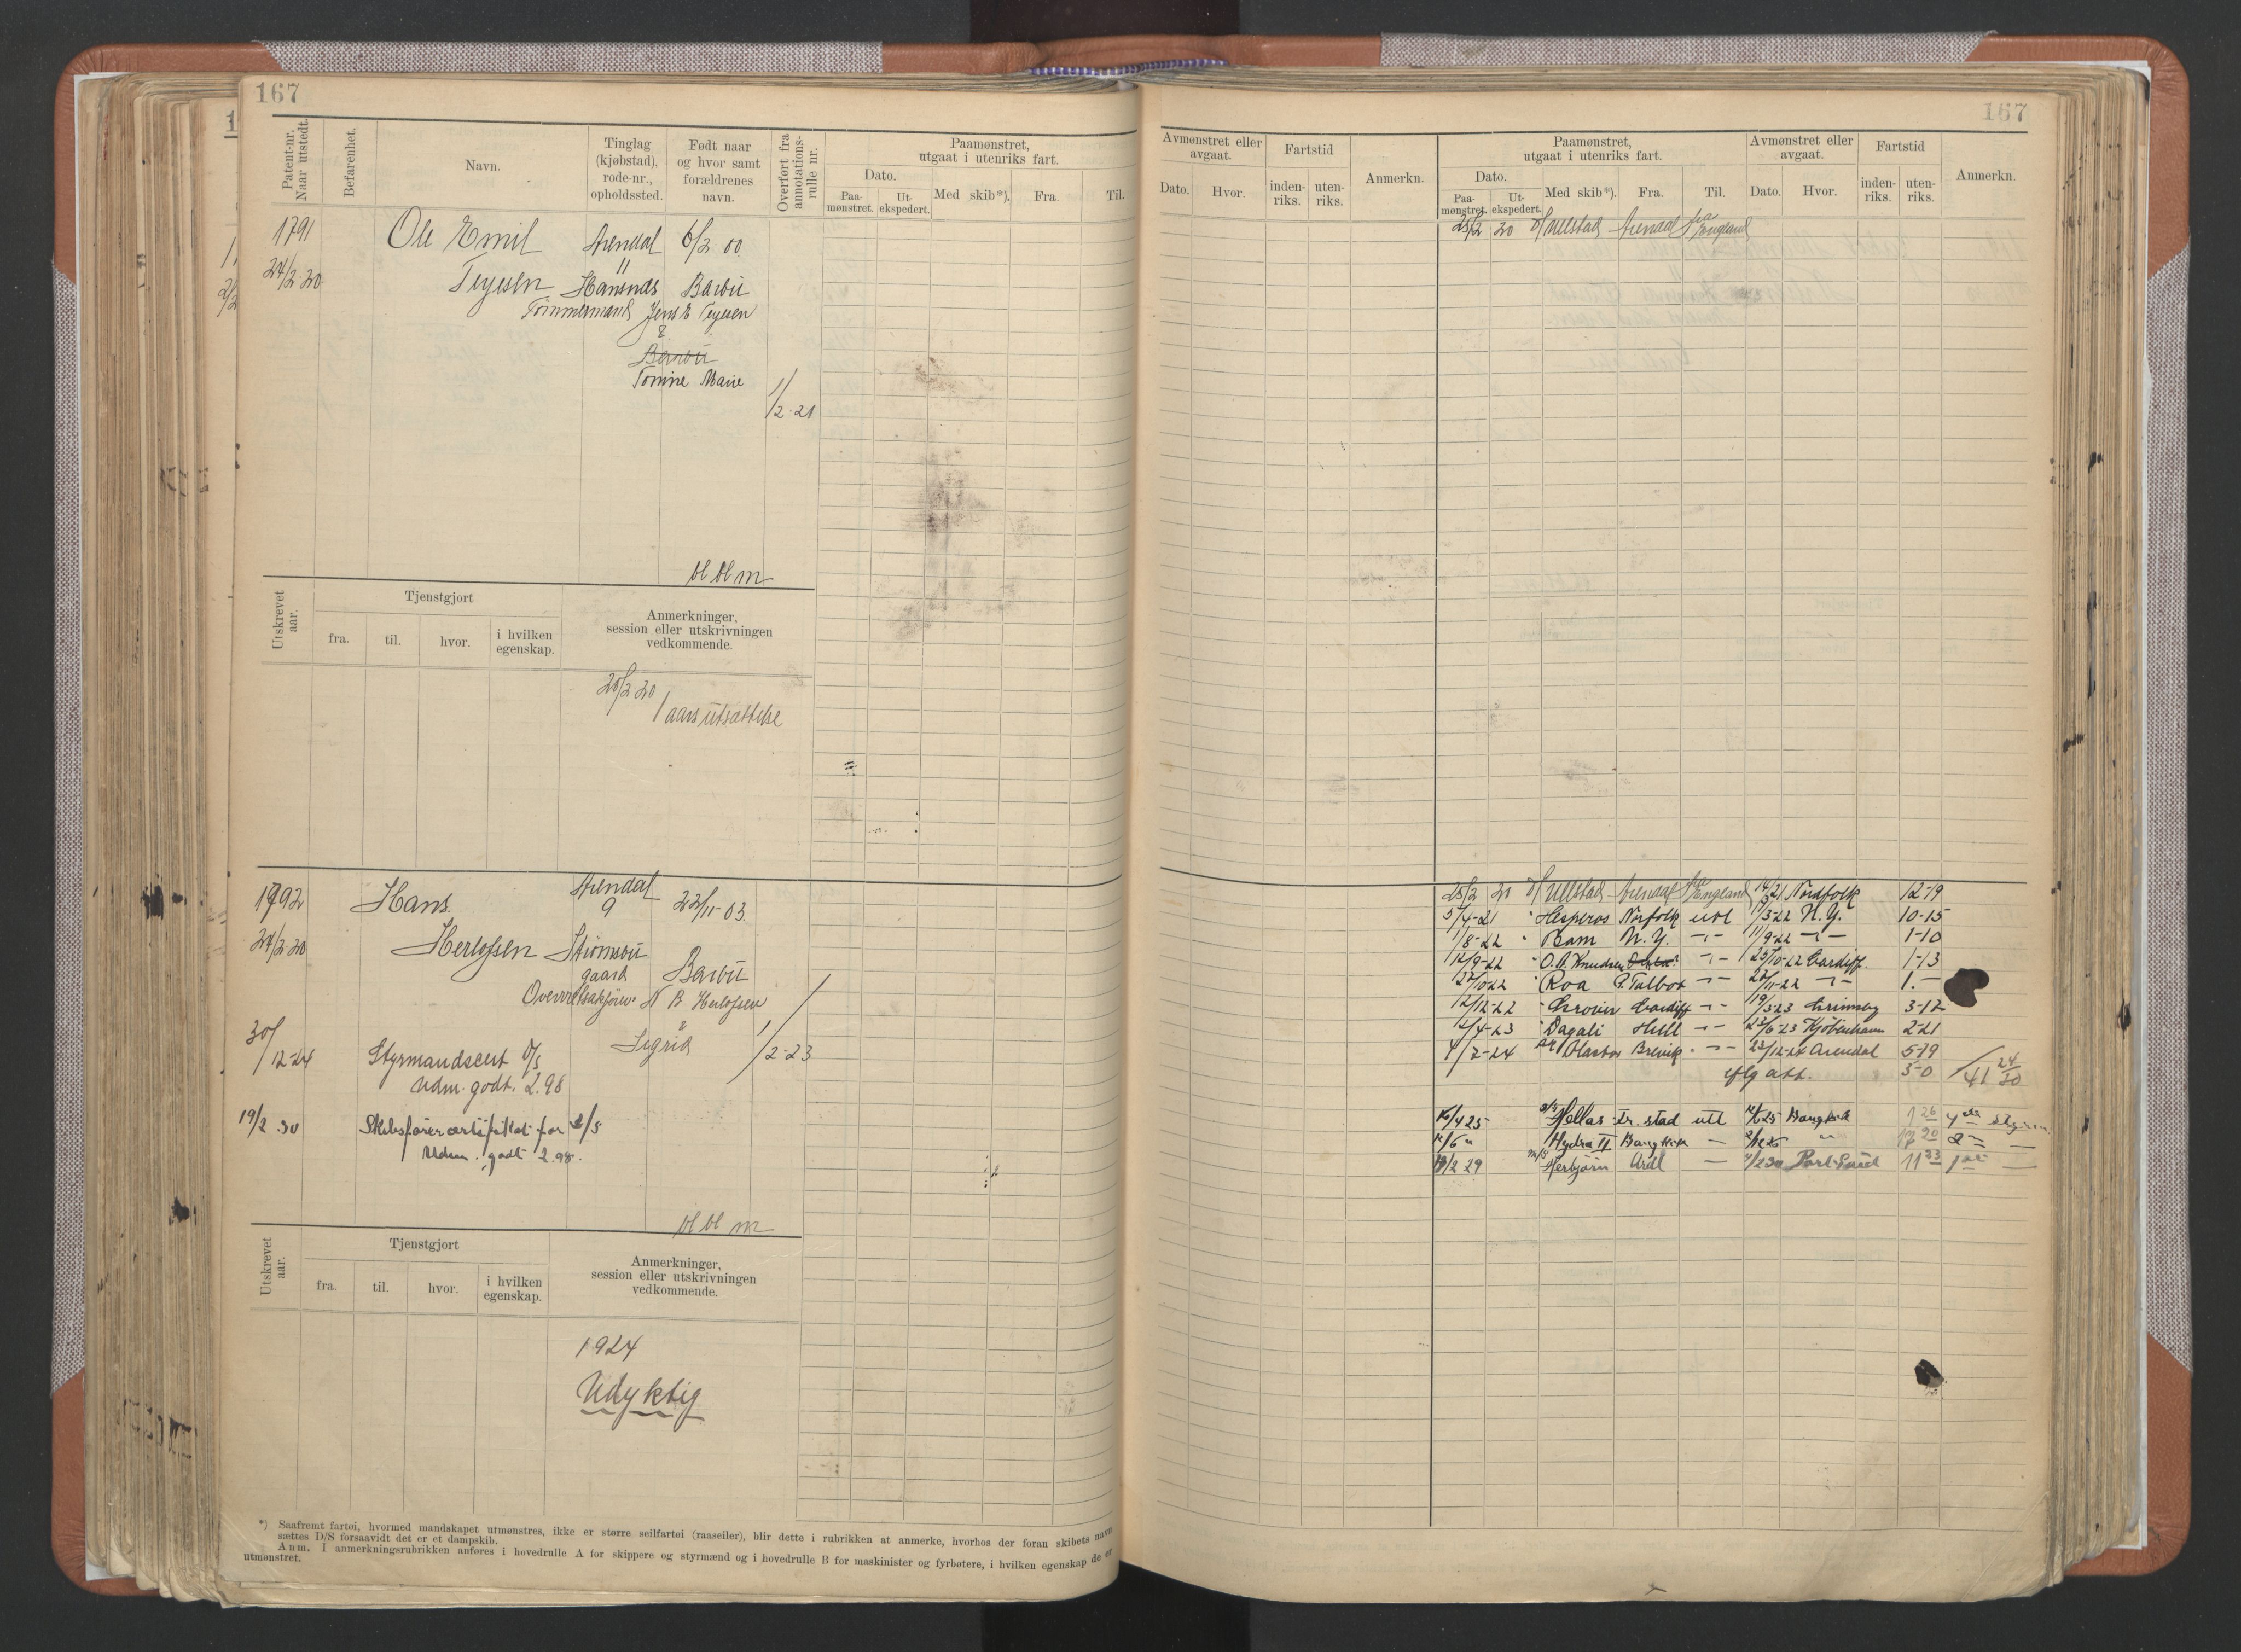 167
167
Patent-nr. Naar utstedt.
Befarenhet.
Navn.
Tinglag (kjøbstad), rode-nr., opholdssted.
Født naar og hvor samt forældrenes navn.
Overført fra annotations-rulle nr.
Paamønstret, utgaat i utenriks fart.
Dato.
Paa-mønstret.
Ut-ekspedert.
Med skib*).
Fra.
Til.
Avmønstret eller avgaat.
Dato.
Hvor.
Fartstid
inden-riks.
uten-riks.
Anmerkn.
Paamønstret, utgaat i utenriks fart.
Dato.
Paa-mønstret.
Ut-ekspedert.
Med skib*).
Fra.
Til.
Avmønstret eller avgaat.
Dato.
Hvor.
Fartstid
inden-riks.
uten-riks.
Anmerkn.
1791 Ole Emil Arendal 6/2 00
25/2 20 Ullstad Arendal England
24/2 20 Barbu
Tømmermand Jens E
&
Barbu
Tomine Marie
1/2-21
bl bl m
Utskrevet aar.
Tjenstgjort
fra.
til.
hvor.
i hvilken egenskap.
Anmerkninger, session eller utskrivningen vedkommende.
20/2 20
1 aars utsættelse
1792 Hans Arendal 9 22/11-03
24/2 20 Herlofsen Strømsbu
gaard Barbu
Overretssakfører N B Herlofsen
&
Sigrid
1/2-23
30/12-24 Styrmandscert
Udm. godt. 2.98
19/2 30 Skibsførercertifikat for S/S
Udm. godt 2.98.
bl bl m
25/2 20 Ullstad Arendal England 14/3 21 Nordfolk 12-19
5/4-21 Hesperos Norfolk utl 1/3-22 N.Y. 10-15
1/8-22 Bam N.Y. -"- 11/9-22 -"- 1-10
12/9-22 O. A. Knudsen -"- 25/10-22 Cardiff. 1-13
27/10-22 Roa P. Talbot -"- 28/11-22 -"- 1.-
12/12-22 Cardiff -"- 19/3-23 Grimsby 3-12
12/4-23 Dagali Hull -"- 23/6-23 Kjøbenhavn 2-21
4/7-24 Brevik -"- 23/12-24 Arendal 5-19
iflg att. 5-0
41 24/30
16/4 25 Hellas Fr. stad utl Bangkok 1 26 4de styrm.
Hydra II Bangkok - " 20 2 -
M/S Herbjørn Ardl - 4/2 30 Port Said 11 23 1ste -
Utskrevet aar.
Tjenstgjort
fra.
til.
hvor.
i hvilken egenskap.
Anmerkninger, session eller utskrivningen vedkommende.
1924
Udyktig
*) Saafremt fartøi, hvormed mandskapet utmønstres, ikke er større seilfartøi (raaseiler), blir dette i rubrikken at anmerke, hvorhos der foran skibets navn
sættes D/S forsaavidt det er et dampskib.
Anm. I anmerkningsrubrikken anføres i hovedrulle A for skippere og styrmænd og i hovedrulle B for maskinister og fyrbøtere, i hvilken egenskap de er
utmønstret.